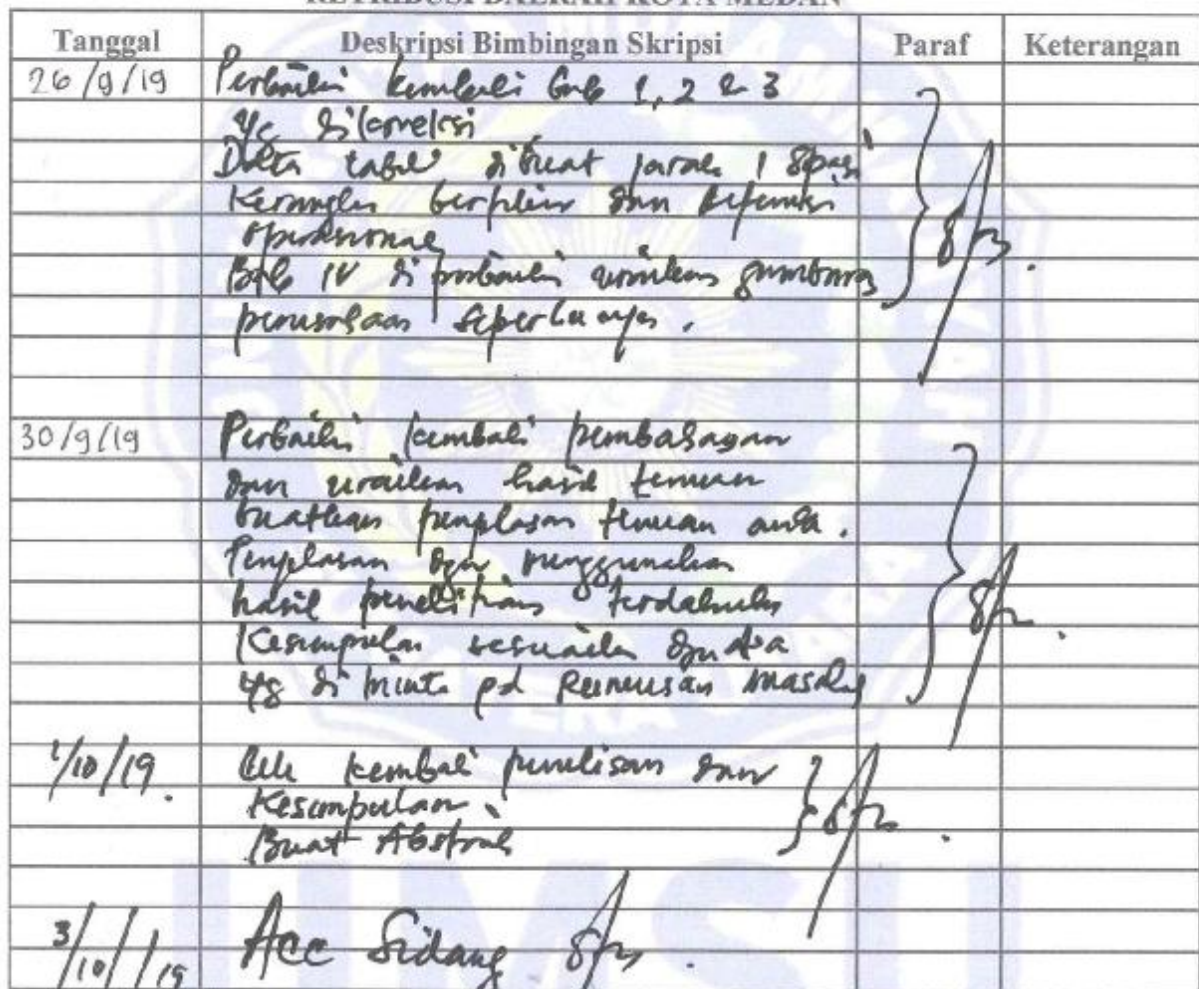 RETRIBUSI DAERAH KOTA MEDAN
Tanggal Deskripsi Bimbingan Skripsi Paraf Keterangan
26/9/19 Perbaiki kembali bab 1, 2 & 3
yg dikoreksi
Data tabel dibuat jarak 1 spasi
Kerangka berpikir dan Definisi
operasional
Bab IV diperbaiki uraikan gambaran
perusahaan seperlunya.
30/9/19 Perbaiki kembali pembahasan
dan uraikan hasil temuan
buatkan penjelasan temuan anda.
Penjelasan dgn menggunakan
hasil penelitian terdahulu
Kesimpulan sesuaikan
yg di minta pd Rumusan masalah
1/10/19. Cek kembali penulisan dan
Kesimpulan.
Buat Abstrak
3/10/19 Acc Sidang
UMSU